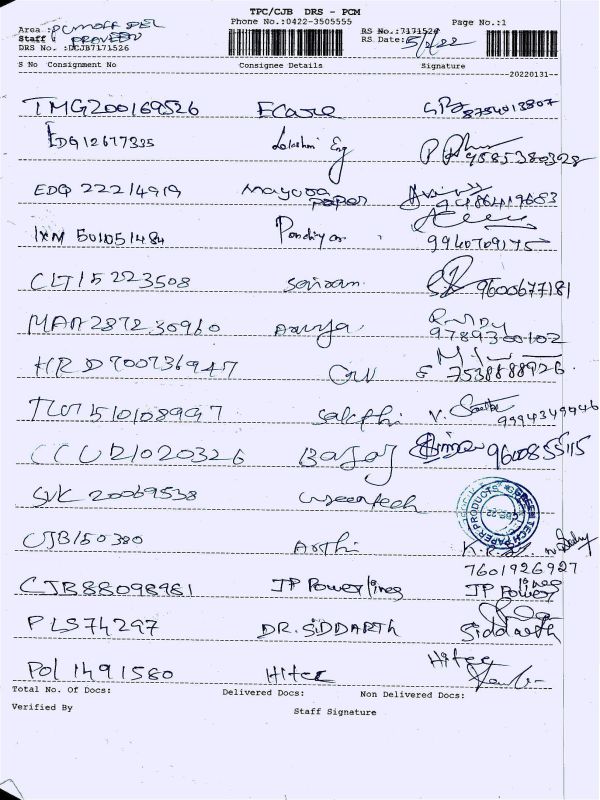 TPC/CJB DRS - PCM
Phone No.:0422-3505555 Page No.:1
Area : PCMOFF DEL
Staff : PRAVEEN
DRS No. :DCJB7171526
RS No.:7171526
RS Date: 5/2/22
S No Consignment No Consignee Details Signature
--20220131--
TMG200169526 Ecare 8754013807
EDQ12677335 Lakshmi Eng 9585380328
EDQ 22214919 Mayura paper 9486419683
IXM 501051484 Pandiyan 9940709175
CLT15223508 Sairam 9600677181
MAA287230960 Aarya 9789300102
HRD900736947 GW 7538888926
TLU1510108997 Sakthi V. 9994349946
CCU21020326 Bajaj 9600855115
SVK 20069538 Greentech GREEN TECH PAPER PRODUCTS
CJB150380 Arthi
7601926927
CJB88098961 JP Powerlines JP Powerlines
PLS74297 DR. SiDDARTH Siddarth
Pol 1491580 Hitec Hitec
Total No. Of Docs: Delivered Docs: Non Delivered Docs:
Verified By Staff Signature